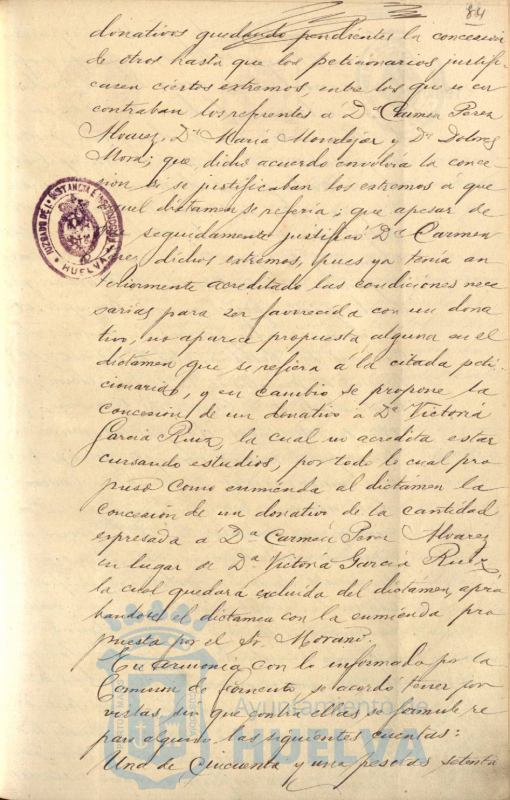 84
donativos quedando pendientes la concesión
de otros hasta que los peticionarios justifi-
casen ciertos extremos, entre los que se en
contraban los referentes á D.ª Carmen Perez
Alvarez, D.ª María Moralejar y D.ª Dolores
Mora; que dicho acuerdo envolvia la conce-
sion si se justificaban los extremos á que
aquel dictamen se referia; que apesar de
seguidamente justificó D.ª Carmen
Perez dichos extremos, pues ya tenia an
teriormente acreditado las condiciones nece
sarias para ser favorecida con un dona
tivo, no aparece propuesta alguna en el
dictamen que se refiera á la citada peti-
cionaria, y en cambio se propone la
concesión de un donativo á D.ª Victoria
García Ruiz, la cual no acredita estar
cursando estudios, por todo lo cual pro
puso como enmienda al dictamen la
concesión de un donativo de la cantidad
expresada á D.ª Carmen Perez Alvarez
en lugar de D.ª Victoria García Ruiz
la cual quedara excluida del dictamen, apro
bandose el dictamen con la enmienda pro
puesta por el Sr. Morano.
En armonía con lo informado por la
Comision de Fomento, se acordó tener por
vistas, sin que contra ellas se formule re
paro alguno las siguientes cuentas:
Una de Cincuenta y una pesetas setenta
JUZGADO DE 1ª INSTANCIA É INSTRUCCION
HUELVA
PORTUS MARIS
Ayuntamiento de
HUELVA